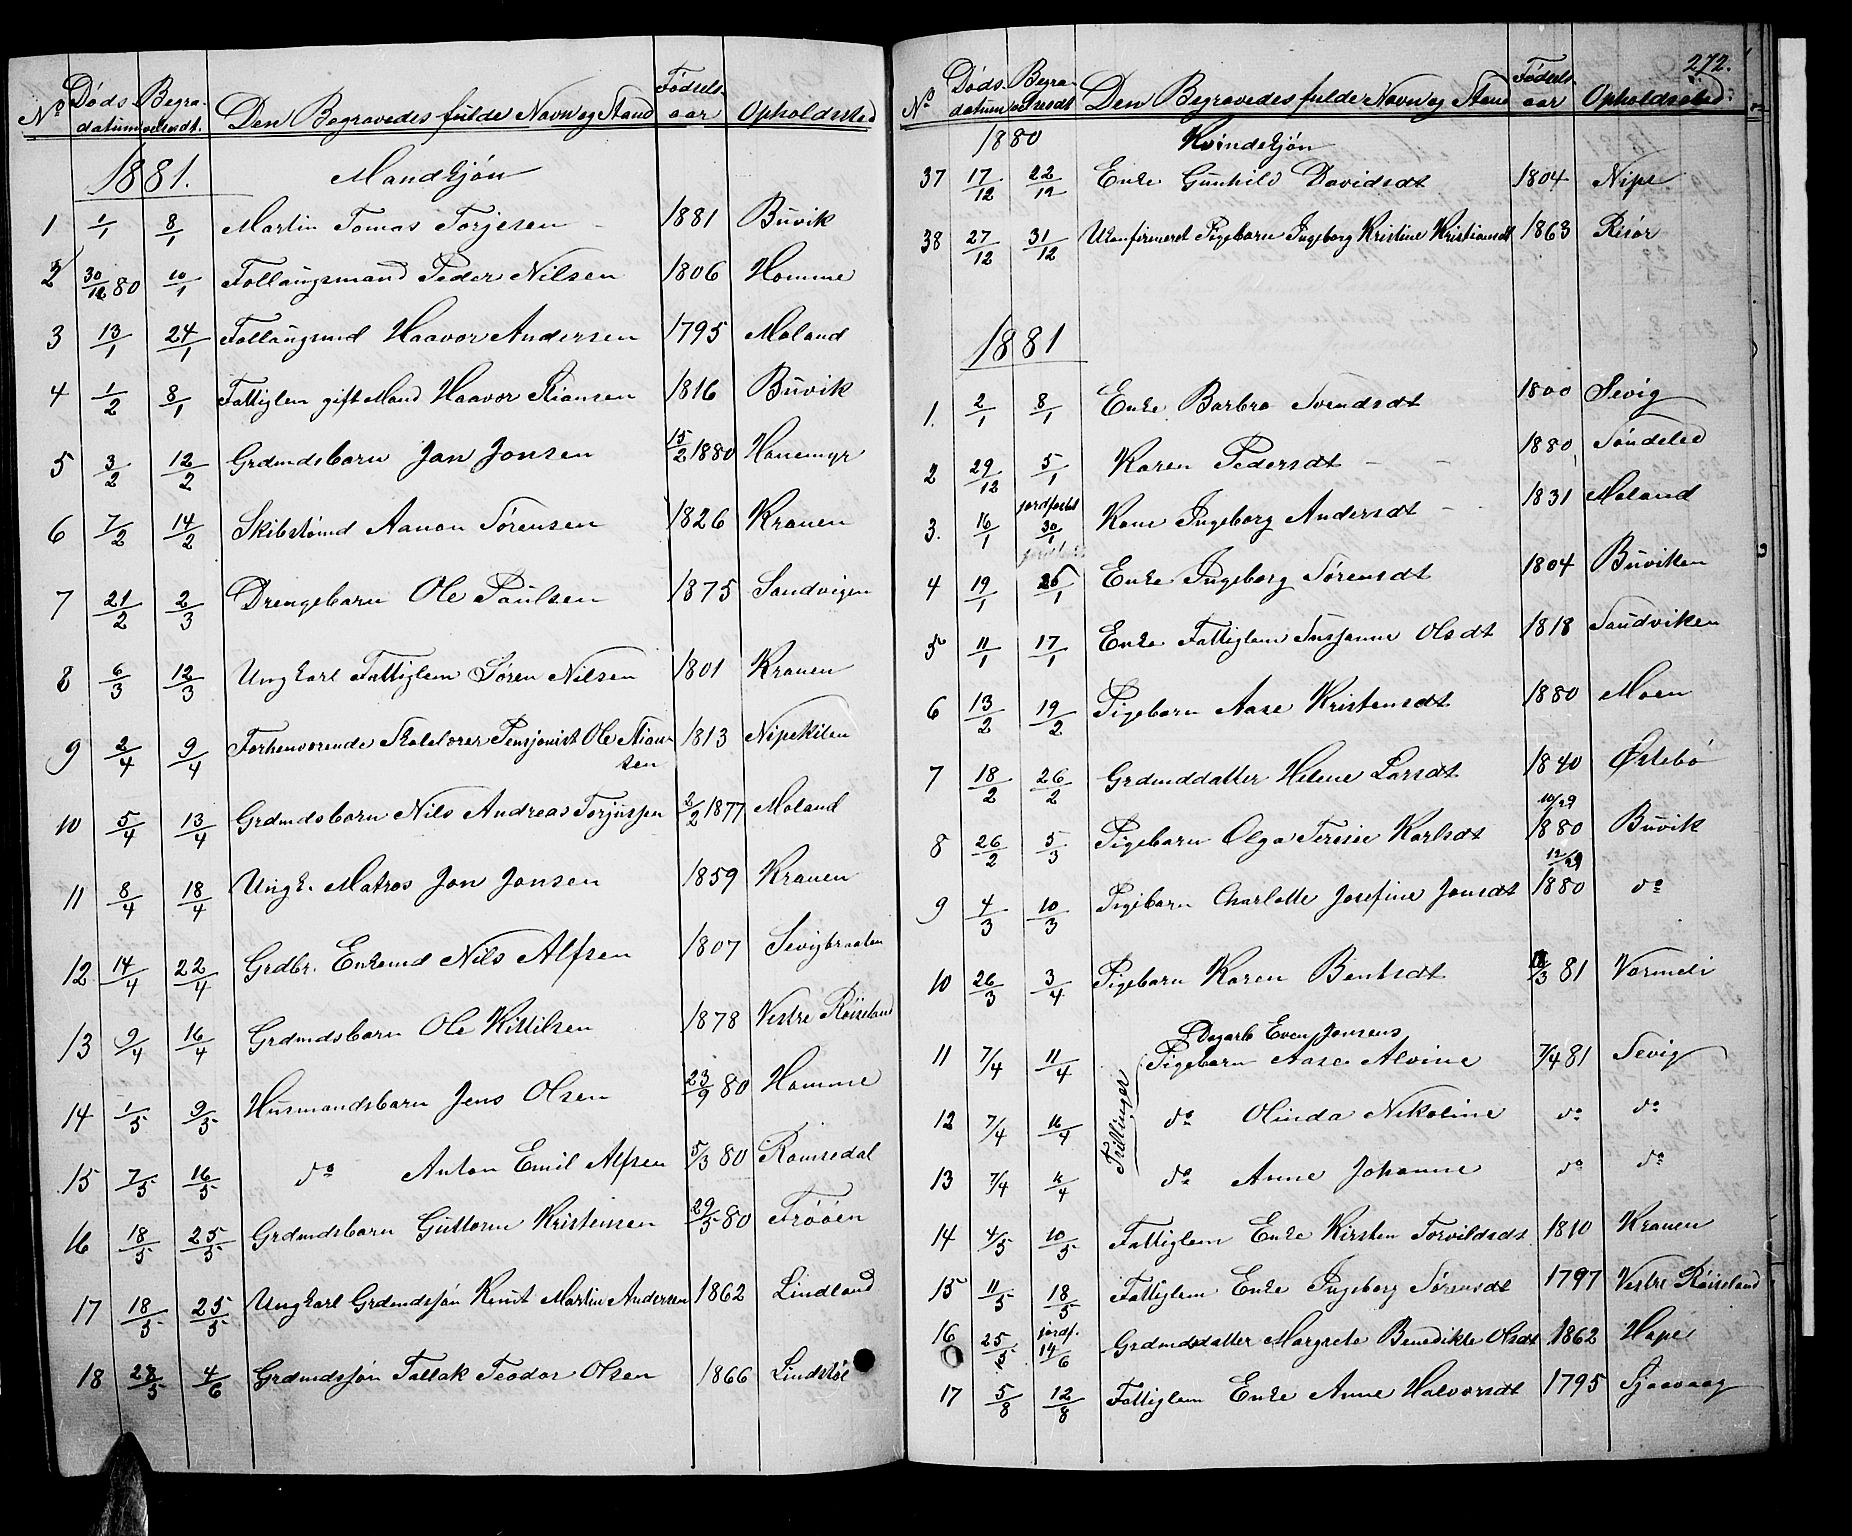 No Døds datum Begra- velsdt. Den Begravedes fulde Navn og Stand Fødsels aar Opholdssted
1881. Mandkjøn
1 1/1 8/1 Martin Tomas Torjesen - 1881 Buvik
2 30/12 80 10/1 Follaugsmand Peder Nilsen 1806 Homme
3 13/1 24/1 Follaugsmd Haavor Andersen 1795 Moland
4 1/2 8/1 Fattiglem gift Mand Haavor Stiansen 1816 Buvik
5 3/2 12/2 Grdmdsbarn Jan Jonsen 15/2 1880 Hanemyr
6 7/2 14/2 Skibstømd Aanon Sørensen 1826 Kranen
7 21/2 2/3 Drengebarn Ole Paulsen 1875 Sandvigen
8 6/3 12/3 Ungkarl Fattiglem Søren Nilsen 1801 Kranen
9 2/4 9/4 Forhenværende Skolelærer Pensjonist Ole Stian-
sen 1813 Nipekilen
10 5/4 13/4 Grdmdsbarn Nils Andreas Torjussen 2/2 1877 Moland
11 8/4 18/4 Ungk. Matros Jon Jonsen 1859 Kranen
12 14/4 22/4 Grdbr. Enkemd Nils Alfsen 1807 Sevigbraaten
13 9/4 16/4 Grdmdsbarn Ole Kittilsen 1878 Vestre Røiseland
14 1/5 9/5 Husmandsbarn Jens Olsen 23/9 80 Homme
15 7/5 16/5 do Anton Emil Alfsen 5/3 80 Ramsedal
16 18/5 25/5 Grdmdsbarn Guttorm Kristensen 29/5 80 Frøøen
17 18/5 25/5 Ungkarl Grdmdssøn Knut Martin Andersen 1862 Lindland
18 28/5 4/6 Grdmdssøn Tallak Teodor Olsen 1866 Lindstøl
272.
No Døds datum Begra- velsdt Den Begravedes fulde Navn og Stand Fødsels aar Opholdssted:
1880 Kvindekjøn
37 17/12 22/12 Enke Gunhild Davidsdt 1804 Nipe
38 27/12 31/12 Ukonfirmeret Pigebarn Ingeborg Kristine Kristiansdt 1863 Risør
1881
1. 2/1 8/1 Enke Barbro Svendsdt 1800 Sevig
2 29/12 5/1 Karen Pedersdt - - 1880 Søndeled
3. 16/1 jordfæstet 30/1 Kone Ingeborg Andersdt - - 1831 Moland
4 19/1 25/1 Enke Ingeborg Sørensdt 1804 Buviken
5 11/1 17/1 Enke Fattiglem Susanne Olsdt 1818 Sandviken
6 13/2 19/2 Pigebarn Aase Kristensdt 1880 Moen
7 18/2 26/2 Grdmddatter Helene Larsdt 1840 Østebø
8 26/2 5/3 Pigebarn Olga Terese Karlsdt 10/29 1880 Buvik
9 4/3 10/3 Pigebarn Charlotte Josefine Jonsdt 12/29 1880 do
10 26/3 3/4 Pigebarn Karen Bentsdt /3 81 Varmeli
Dagarb Even Jensens
11 7/4 11/4 Trillinger Pigebarn Aase Alvine 7/4 81 Sevig
12 7/4 11/4 do Olinda Nikoline do do
13 7/4 11/4 do Anne Johanne do do
14 4/5 10/5 Fattiglem Enke Kirsten Torvildsdt 1810 Kranen
15 11/5 18/5 Fattiglem Enke Ingeborg Sørensdt 1797 Vestre Røiseland
16 25/5 jordf. 14/6 Grdmdsdatter Margrete Benedikte Olsdt 1862 Hope
17 5/8 12/8 Fattiglem Enke Anne Halvorsdt 1795 Sjaavaag